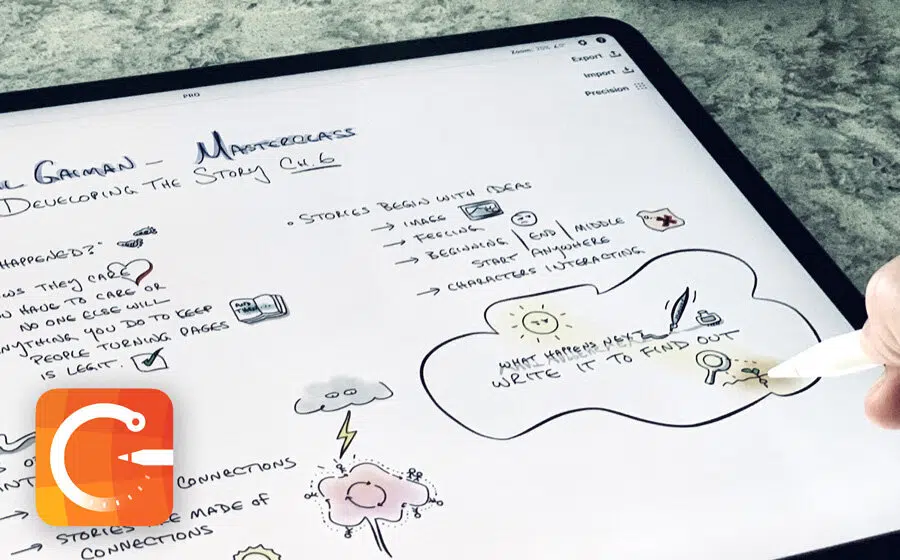 Zoom: 70%
Export
Import
Precision
PRO
GAIMAN - MASTERCLASS
DEVELOPING THE STORY CH. 6
HAPPENED?"
THEY CARE
HAVE TO CARE OR
NO ONE ELSE WILL
ANYTHING YOU DO TO KEEP
PEOPLE TURNING PAGES
IS LEGIT.
• STORIES BEGIN WITH IDEAS
→ IMAGE
→ FEELING
→ BEGINNING | END | MIDDLE
START ANYWHERE
→ CHARACTERS INTERACTING
WHAT HAPPENS NEXT
WRITE IT TO FIND OUT
CONNECTIONS
→ STORIES ARE MADE OF
→ CONNECTIONS